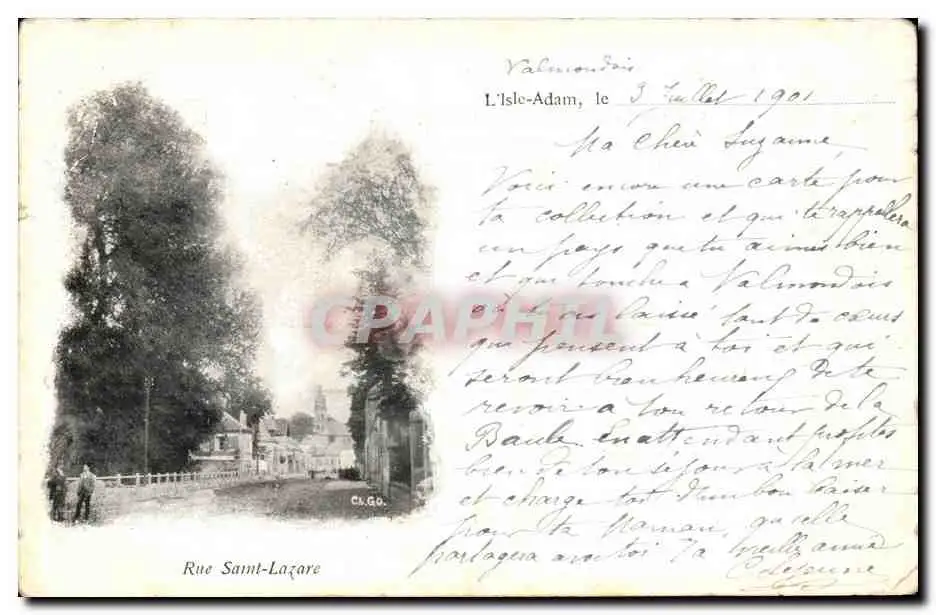 Valmondois
L'Isle-Adam, le 3 Juillet 1901
Ma Chère Suzanne,
Voici encore une carte pour
ta collection et qui te rappellera
un pays que tu aimes bien
et qui touche à Valmondois
où tu as laissé tant de cœurs
qui pensent à toi et qui
seront bien heureux de te
revoir à ton retour de la
Baule. En attendant profites
bien de ton séjour à la mer
et charge toi d'un bon baiser
pour ta Maman, qu'elle
partagera avec toi Ta vieille amie
C Lejeune
CPAPHIL
Ch.GO.
Rue Saint-Lazare